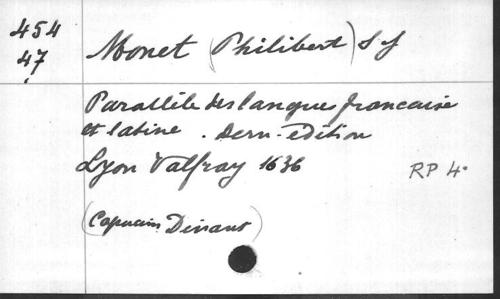 454 Monet (Philibert) S J
47
Parallèle des langues francaise
et latine. Dern. edition
Lyon Valfray 1636
RP 4.
(Capucins Dinant)